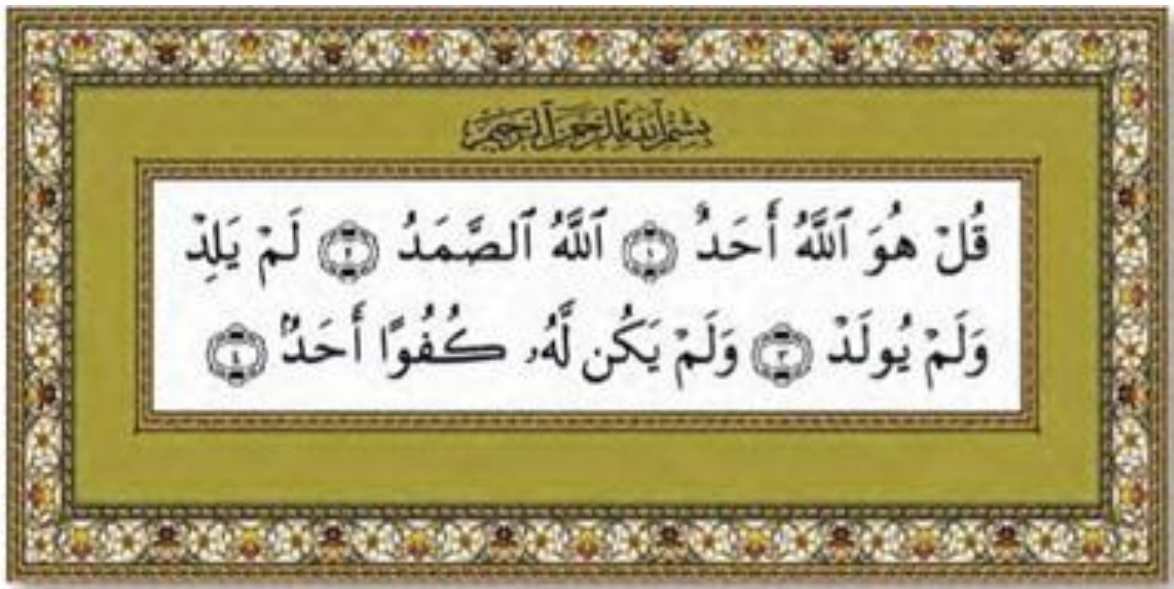 بِسْمِ ٱللَّهِ ٱلرَّحْمَٰنِ ٱلرَّحِيمِ
قُلْ هُوَ ٱللَّهُ أَحَدٌ ۝١ ٱللَّهُ ٱلصَّمَدُ ۝٢ لَمْ يَلِدْ
وَلَمْ يُولَدْ ۝٣ وَلَمْ يَكُن لَّهُۥ كُفُوًا أَحَدٌۢ ۝٤